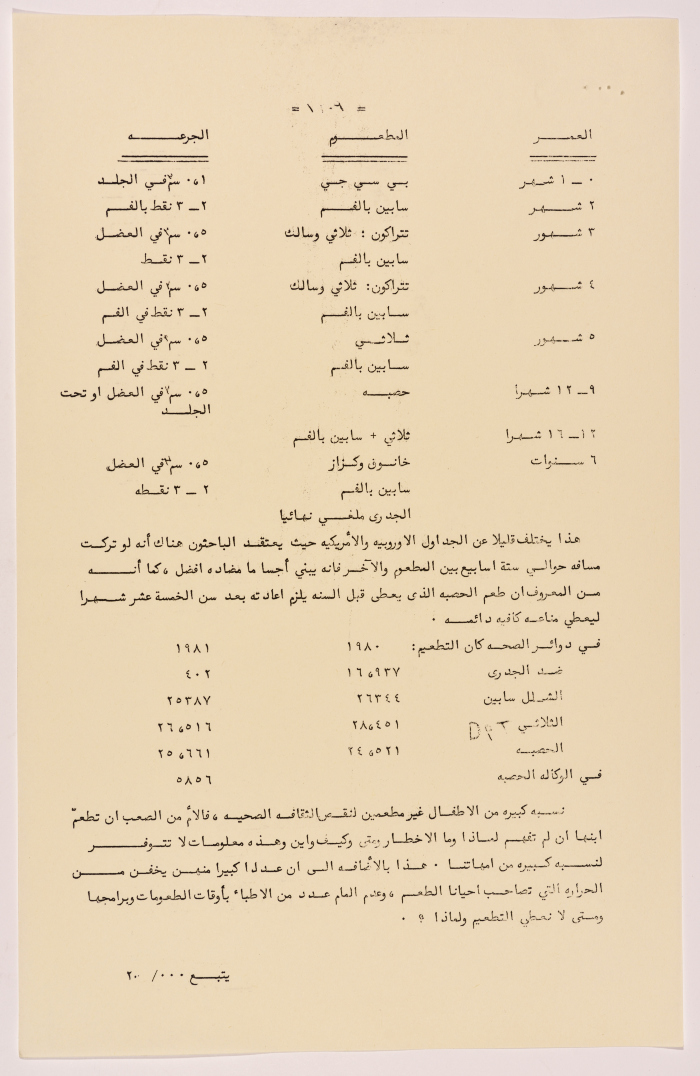 = ١٠٦ =
العمــر المطعــوم الجرعــه
٠ ــ ١ شهر بي سي جي ٠،١ سم٣ في الجلد
٢ شهر سابين بالفم ٢ــ ٣ نقط بالفم
٣ شهور تتراكون : ثلاثي وسالك ٠،٥ سم٣ في العضل
سابين بالفم ٢ــ ٣ نقط
٤ شهور تتراكون: ثلاثي وسالك ٠،٥ سم٣ في العضل
سابين بالفم ٢ــ ٣ نقط في الفم
٥ شهور ثلاثي ٠،٥ سم٣ في العضل
سابين بالفم ٢ ــ ٣ نقط في الفم
٩ــ ١٢ شهرا حصبه ٠،٥ سم٣ في العضل او تحت
الجلد
١٢ــ ١٦ شهرا ثلاثي + سابين بالفم
٦ سنوات خانوق وكزاز ٠،٥ سم٣ في العضل
سابين بالفم ٢ ــ ٣ نقطه
الجدرى ملغي نهائيا
هذا يختلف قليلا عن الجداول الاوروبيه والأمريكيه حيث يعتقد الباحثون هناك أنه لو تركت
مسافه حوالي ستة اسابيع بين المطعوم والآخر فانه يبني أجساما مضاده افضل ، كما أنه
من المعروف ان طعم الحصبه الذى يعطى قبل السنه يلزم اعادته بعد سن الخمسة عشر شهرا
ليعطي مناعه كافيه دائمه .
في دوائر الصحه كان التطعيم: ١٩٨٠ ١٩٨١
ضد الجدرى ١٦،٩٣٧ ٤٠٢
الشلل سابين ٢٦٣٤٤ ٢٥٣٨٧
الثلاثي DPT ٢٨،٤٥١ ٢٦،٥١٦
الحصبه ٢٤،٥٢١ ٢٥،٦٦١
في الوكاله الحصبه ٥٨٥٦
نسبه كبيره من الاطفال غير مطعمين لنقص الثقافه الصحيه ، فالأم من الصعب ان تطعّم
ابنها ان لم تفهم لماذا وما الاخطار ومتى وكيف واين وهذه معلومات لا تتوفر
لنسبه كبيره من امهاتنا . هذا بالأضافه الى ان عددا كبيرا منهن يخفن من
الحراره التي تصاحب احيانا الطعم ، وعدم المام عدد من الاطباء بأوقات الطعومات وبرامجها
ومتى لا نعطي التطعيم ولماذا ؟ .
يتبع ٠٠٠/ ٢٠